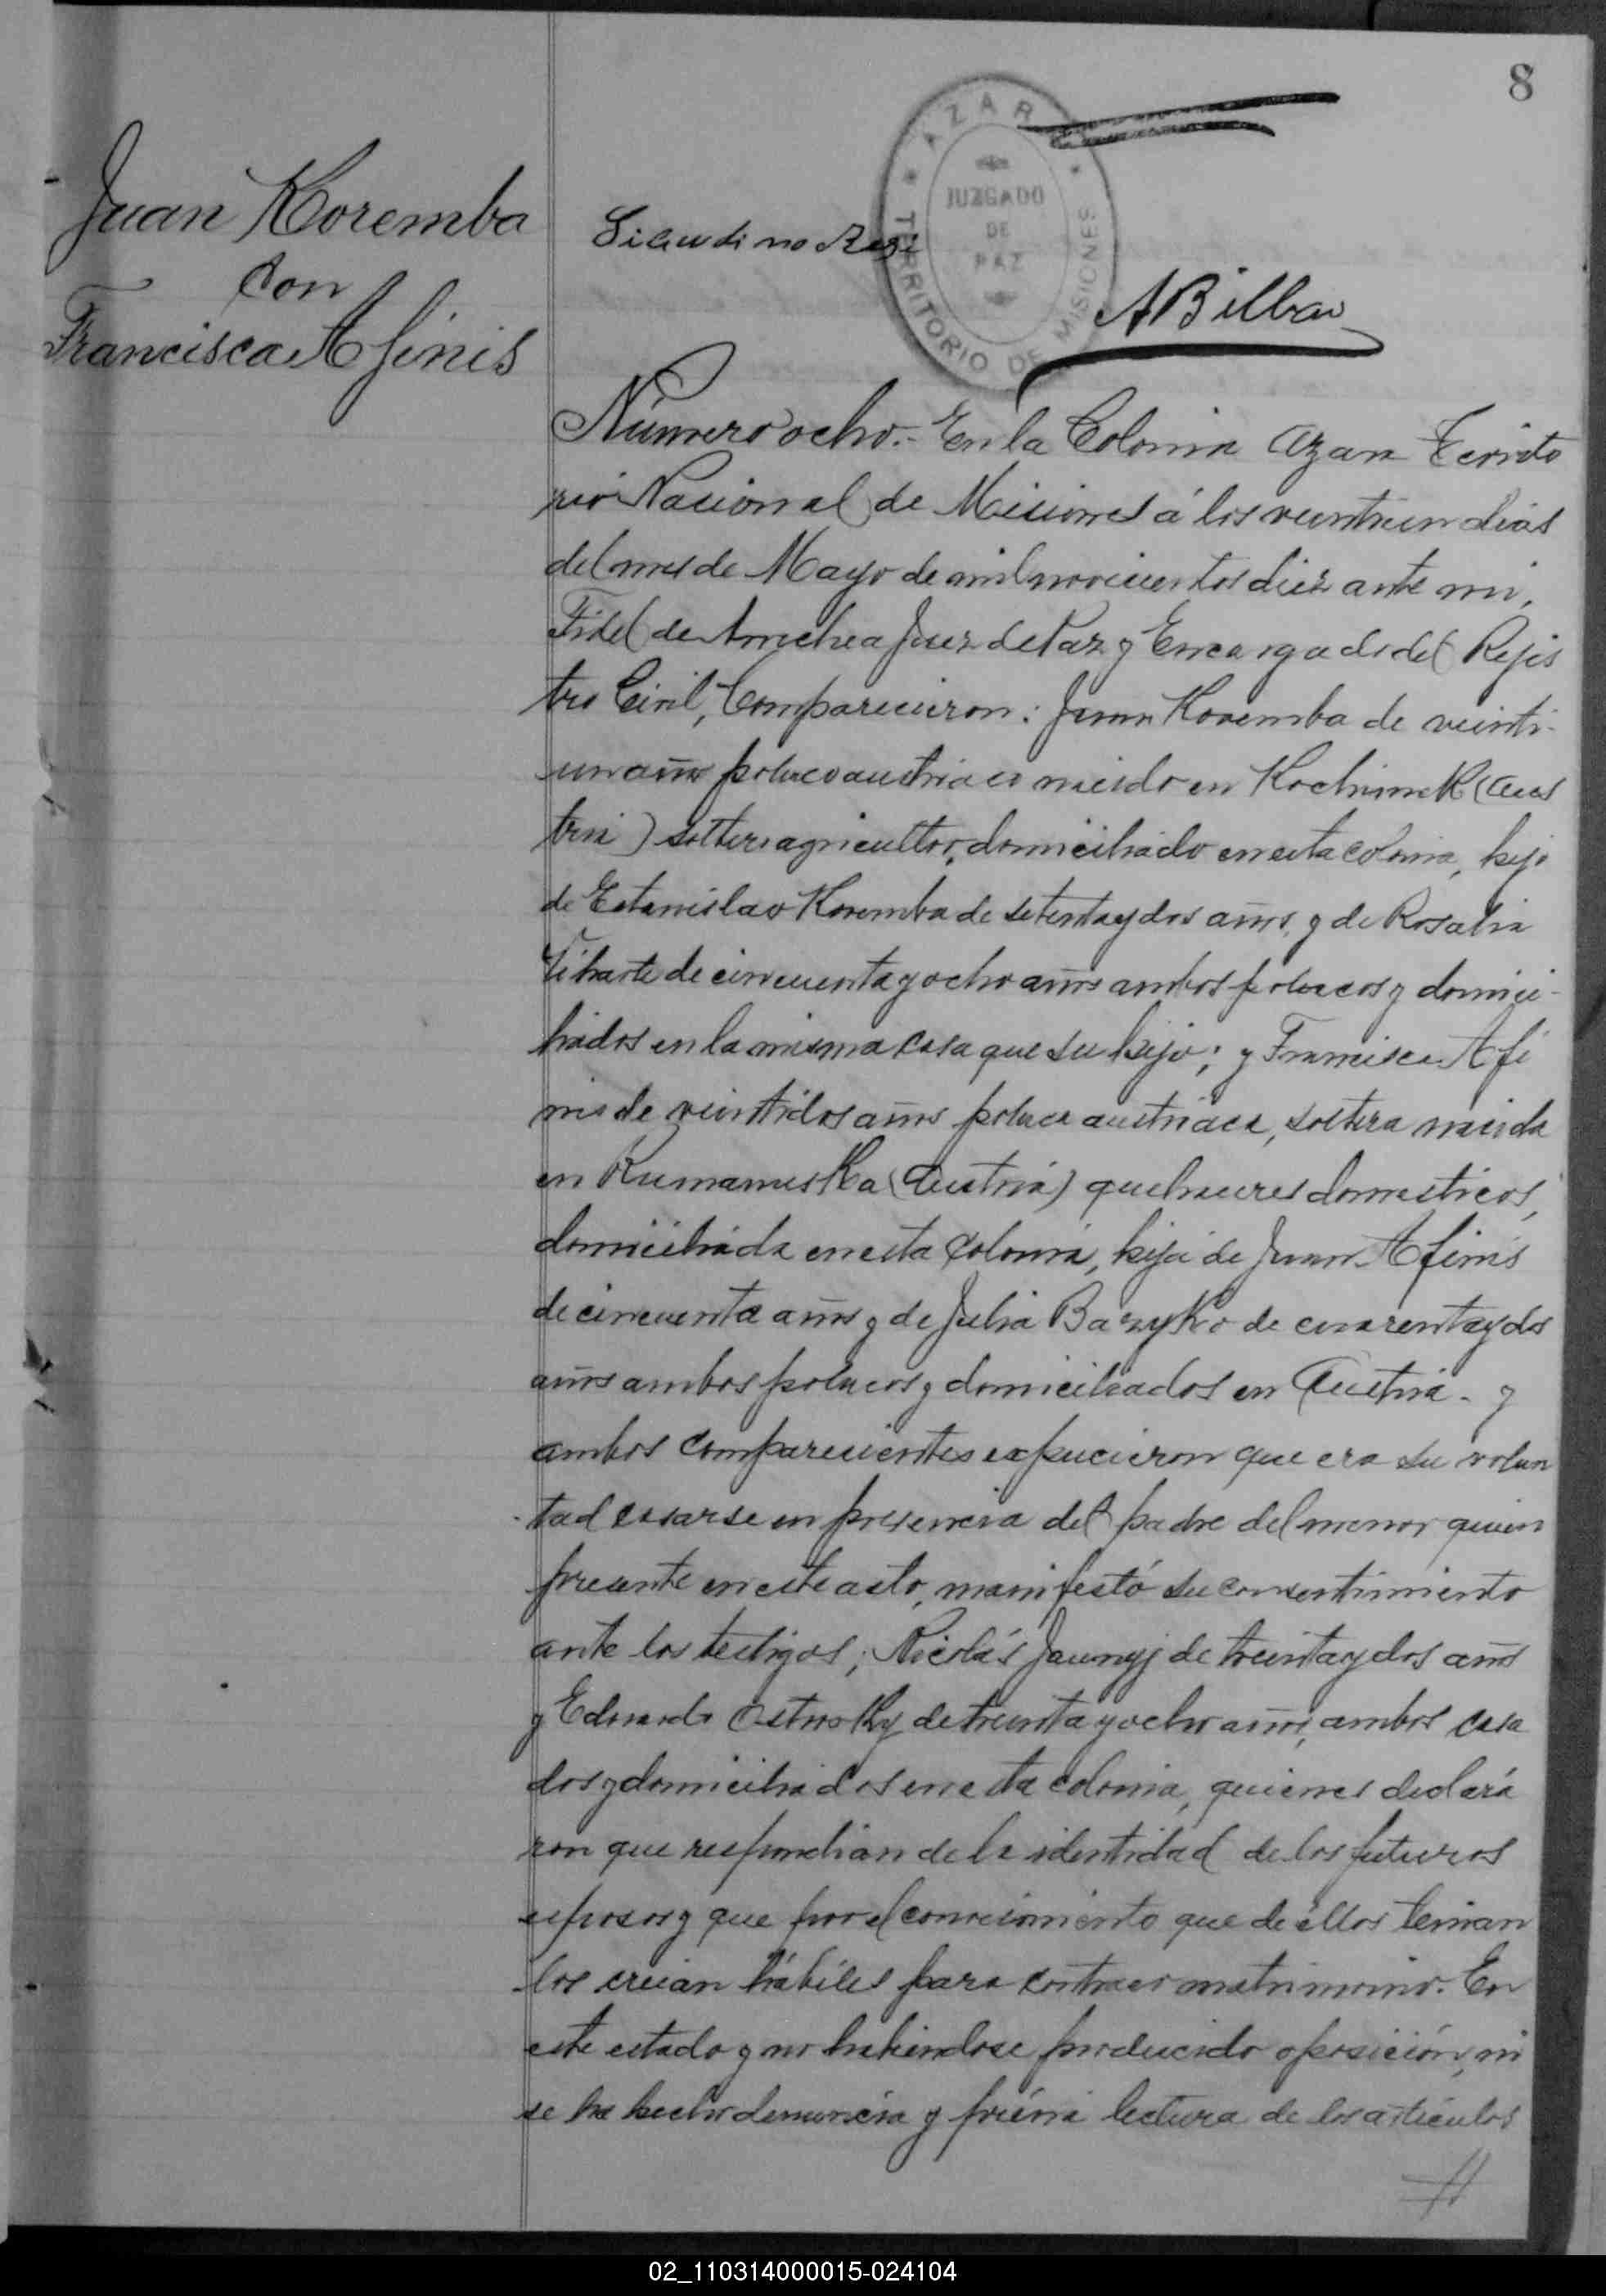 8
AZARA
JUZGADO
DE
PAZ
TERRITORIO DE MISIONES
Juan Koremba
con
Francisca Afinis
ABilbao
Número ocho.- En la Colonia Azara Territo
rio Nacional de Misiones á los veintiun dias
del mes de Mayo de mil novecientos diez ante mi,
Fidel de Amechea Juez de Paz y Encargado del Rejis
tro Civil, Comparecieron: Juan Koremba de veinti-
un años polaco austriaco nacido en Kochimek (Aus
tria) soltero agricultor, domiciliado en esta colonia, hijo
de Estanislao Koremba de setenta y dos años, y de Rosalia
de cincuenta y ocho años ambos polacos y domici-
liados en la misma casa que su hijo; y Francisca Afi
nis de veintidos años polaca austriaca, soltera nacida
en (Austria) quehaceres domesticos,
domiciliada en esta Colonia, hija de Juan Afinis
de cincuenta años y de Julia Bazyko de cuarenta y dos
años ambos polacos y domiciliados en Austria - y
ambos comparecientes expucieron que era su volun
tad casarse en presencia del padre del menor quien
presente en este acto, manifestó su consentimiento
ante los testigos; Nicolás Jaunyj de treinta y dos años
y Eduardo de treinta y ocho años, ambos casa
dos y domiciliados en esta colonia, quienes declara
ron que respondian de la identidad de los futuros
esposos y que por el conocimiento que de éllos tenian
los creian hábiles para contraer matrimonio. En
este estado y no habiendose producido oposición, ni
se ha hecho denuncia y prévia lectura de los artículos
//
02_110314000015-024104